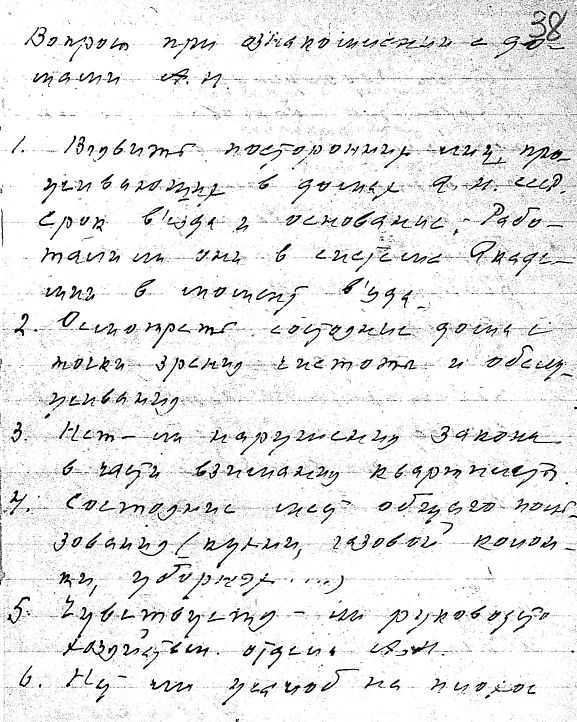 38
Вопросы при ознакомлении с до-
мами А.Н.
1. Выявить посторонних лиц, про-
живающих в домах А.Н. СССР.
Срок в'езда и основание. Рабо-
тали ли они в системе Акаде-
мии в момент в'езда.
2. Осмотреть состояние дома с
точки зрения чистоты и обслу-
живания
3. Нет-ли нарушения закона
в части взимания квартплаты.
4. Состояние мест общего поль-
зования (кухни, газовой колон-
ки, уборных ...)
5. Чувствуется-ли руководство
хозяйствен. отдела А.Н.
6. Нет ли жалоб на плохое